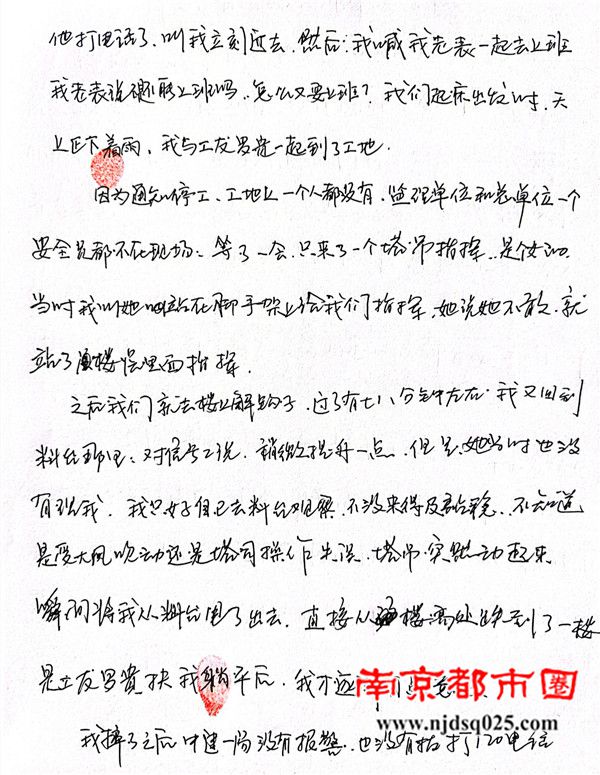 他打电话了,叫我立刻过去.然后:我喊我老表一起去上班
我老表说 上班吗.怎么又要上班?我们起床出发时,天
上正下着雨、我与工友罗 一起到了工地.
因为通知停工、工地上一个人都没有,监理单位和总单位一个
安全员都不在现场.等了一会.只来了一个塔吊指挥.是女的.
当时我叫她 站在脚手架上给我们指挥,她说她不敢.就
站了 楼层里面指挥.
之后我们就去楼上解钩子,过了有七八分钟左右.我又回到
料台那里.对信号工说.稍微提升一点.但是她当时也没
有理我.我只好自己去料台观察.不没来得及 稳..不知道
是受大风吹动还是塔司操作失误.塔吊突然动起来
瞬间将我从料台甩了出去.直接从 楼高处跌到了一楼
是工友罗贵 扶我躺平后.我才
我摔了之后中建一局没有报警.也没有拍打120电话
南京都市圈
www.njdsq025.com